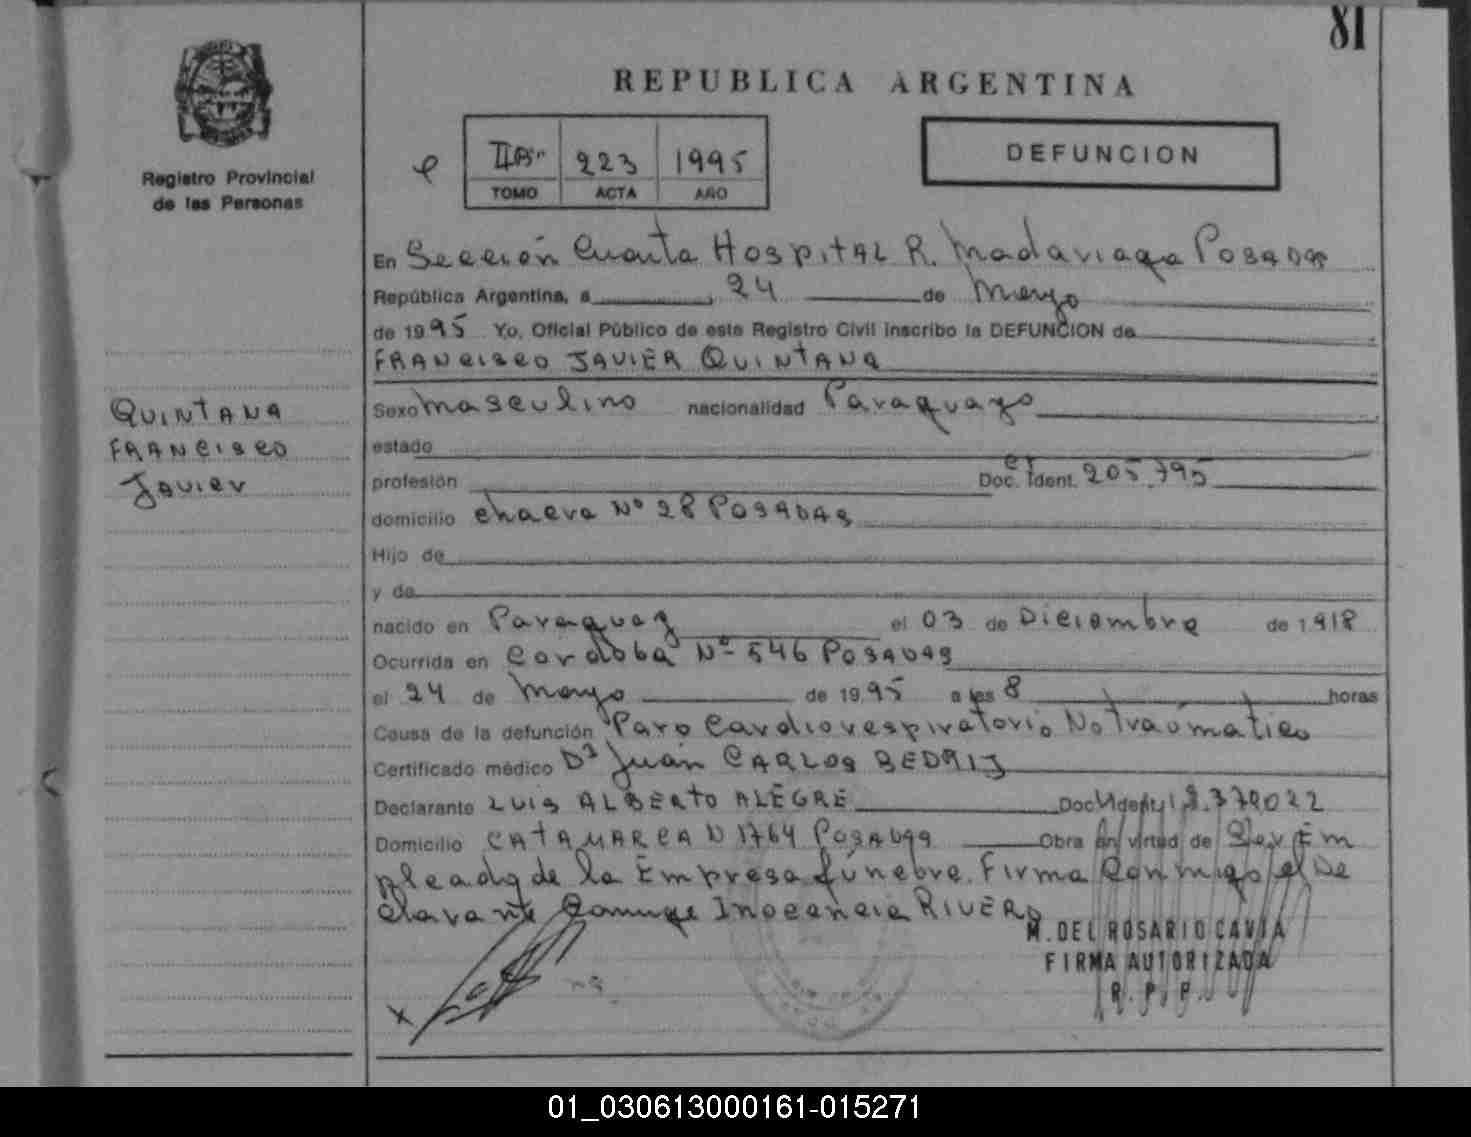 81
REPUBLICA ARGENTINA
Registro Provincial
de las Personas
223 1995
TOMO ACTA AÑO
DEFUNCION
En Sección Cuarta HospitAL R. Madariaga POSADAS
República Argentina, a 24 de Mayo
de 1995 Yo, Oficial Público de este Registro Civil inscribo la DEFUNCION de
FRANCISCO JAVIER QUINTANA
QUINTANA
FRANCISCO
Javier
Sexo masculino nacionalidad Paraguayo
estado
profesión Doc. Ident. CI 205.795
domicilio chacra Nº 28 POSADAS
Hijo de
y de
nacido en Paraguay el 03 de Diciembre de 1918
Ocurrida en Cordoba Nº 546 POSADAS
el 24 de Mayo de 1995 a las 8 horas
Causa de la defunción Paro Cardiorespiratorio No traumatico
Certificado médico Dr Juan CARLOS BEDRIJ
Declarante LUIS ALBERTO ALEGRE Doc. Ident.
Domicilio CATAMARCA N 1764 POSADAS Obra en virtud de Ser Em
pleado de la Empresa fúnebre. Firma Conmigo el De
clarante Inocencia RIVERO
M. DEL ROSARIO CAVIA
FIRMA AUTORIZADA
R. P. P.
01_030613000161-015271